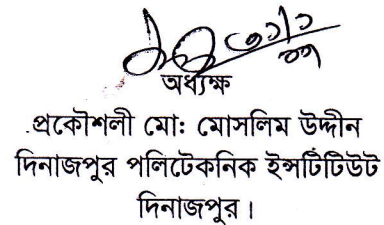 অধ্যক্ষ
প্রকৌশলী মো: মোসলিম উদ্দীন
দিনাজপুর পলিটেকনিক ইন্সটিটিউট
দিনাজপুর।